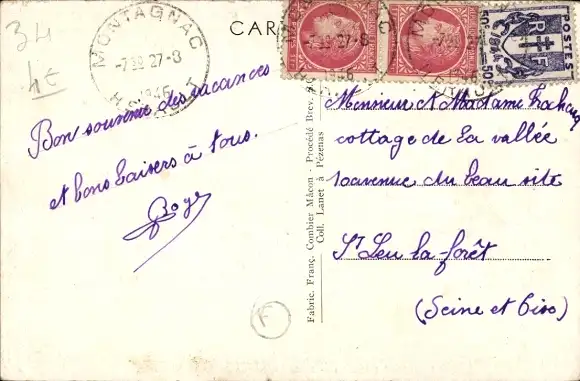 34
4€
MONTAGNAC
-7 30 27-8
1946
HERAULT
CAR
POSTES
RF
Bon souvenir des vacances
et bons baisers à tous.
Fabric. Franç. Combier Mâcon - Procédé Brev.
Coll. Lanet à Pézenas
Monsieur et Madame
cottage de la vallée
10 avenue du beau site
St Leu la forêt
(Seine et Oise)
F